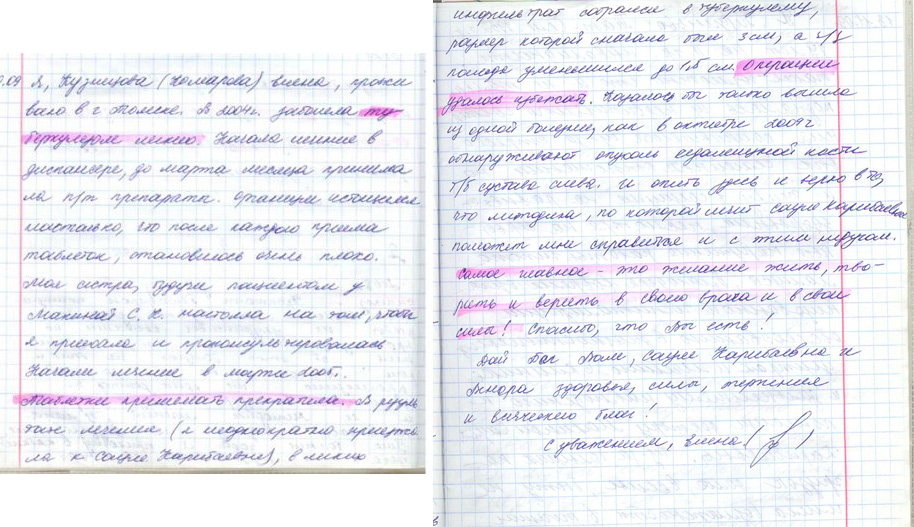 .09 Я, Кузнецова (Комарова) Елена, прожи
ваю в г Томске. В 2004г. заболела ту
беркулезом легких. Начала лечение в
диспансере, до марта месяца принима
ла п/т препараты. Организм истощился
настолько, что после каждого приема
таблеток, становилось очень плохо.
Моя сестра, будучи пациентом у
Макиной С. К. настояла на том, чтобы
я приехала и проконсультировалась
Начали лечение в марте 2005г.
Таблетки принимать прекратила. В резуль
тате лечения (я неоднократно приезжа
ла к Сауле Карибаевне), в легких
инфильтрат собрался в туберкулему,
размер которой сначала был 3 см, а ч/з
полгода уменьшился до 1,5 см. Операции
удалось избежать. Казалось бы только вышла
из одной болезни, как в октябре 2009г
обнаруживают опухоль седалищной кости
т/б сустава слева. И опять здесь я верю в то,
что методика, по которой лечит Сауле Карибаевна
поможет мне справиться и с этим недугом.
Самое главное - это желание жить, тво-
рить и верить в своего врача и в свои
силы! Спасибо, что Вы есть!
Дай Бог Вам, Сауле Карибаевна и
здоровья, силы, терпения
и всяческих благ!
С уважением, Елена (